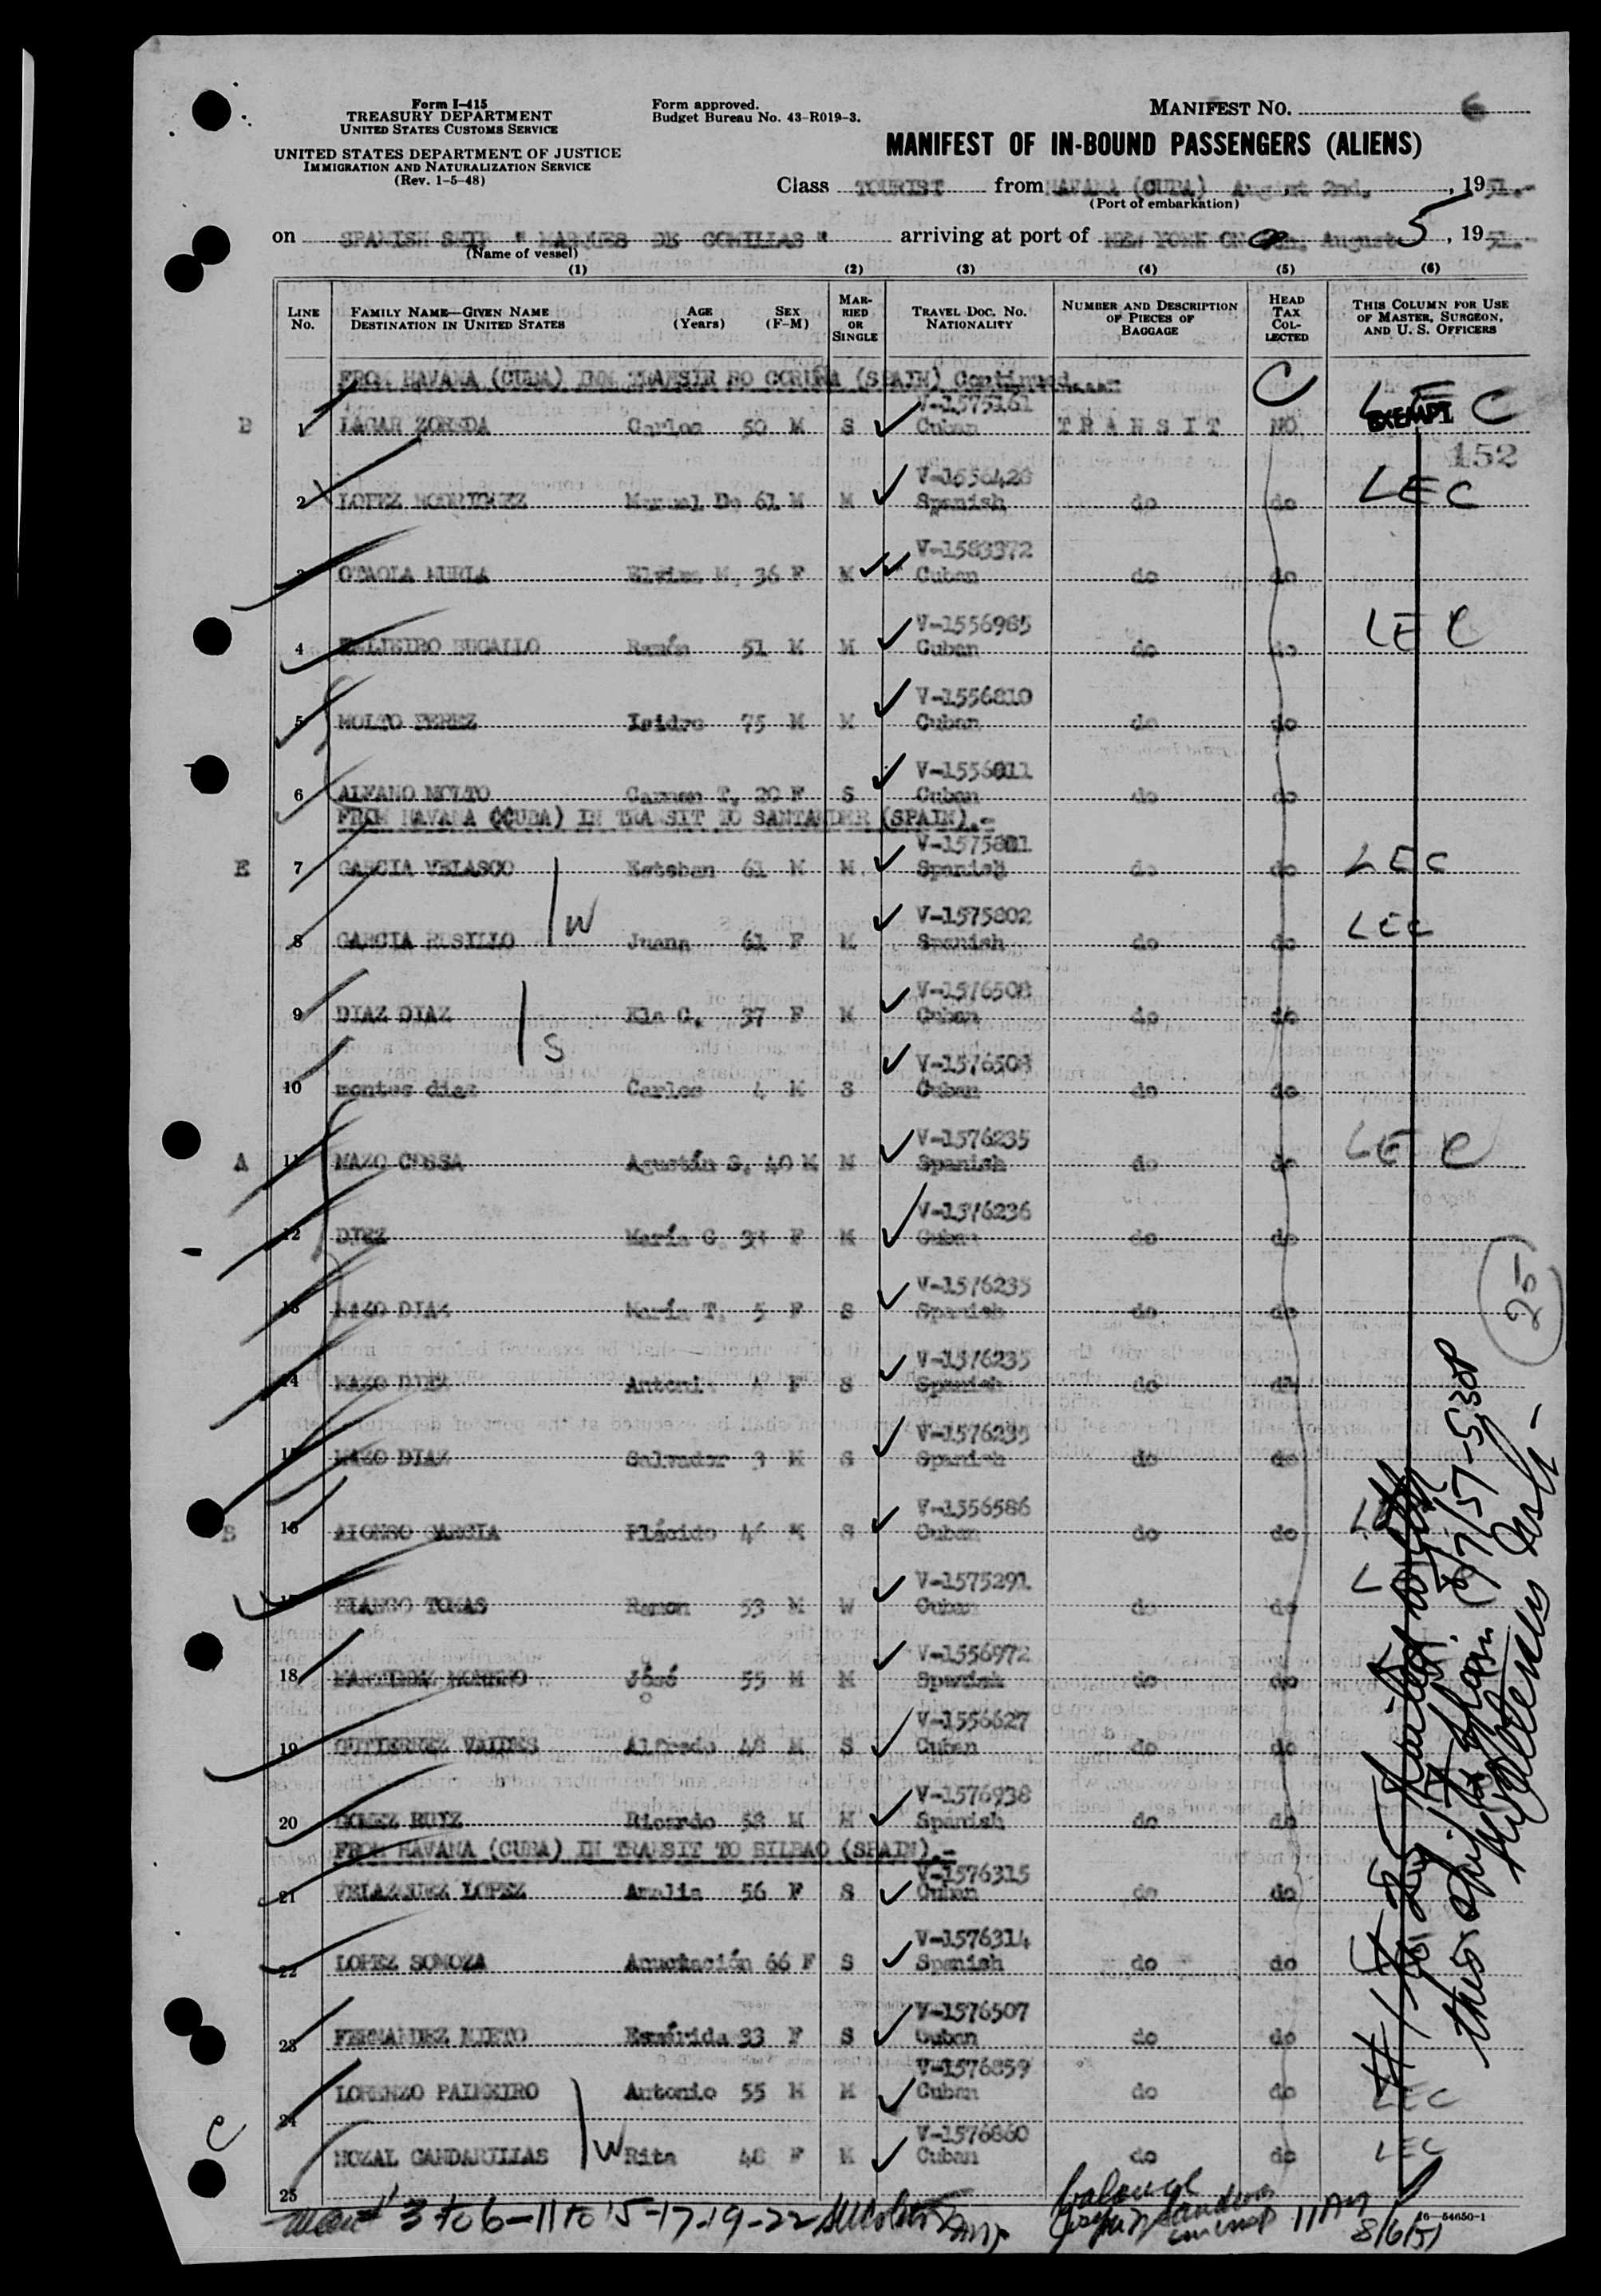 Form I-415
TREASURY DEPARTMENT
UNITED STATES CUSTOMS SERVICE
UNITED STATES DEPARTMENT OF JUSTICE
IMMIGRATION AND NATURALIZATION SERVICE
(Rev. 1-5-48)
Form approved.
Budget Bureau No. 43-R019-3.
MANIFEST NO. 6
MANIFEST OF IN-BOUND PASSENGERS (ALIENS)
Class TOURIST from HAVANA (CUBA) August 2nd, , 1951.-
(Port of embarkation)
on SPANISH SHIP "MARQUES DE COMILLAS" arriving at port of NEW YORK ON August 5, 1951.-
(Name of vessel)
(1) (2) (3) (4) (5) (6)
LINE NO. FAMILY NAME—GIVEN NAME DESTINATION IN UNITED STATES AGE (Years) SEX (F-M) MARRIED OR SINGLE TRAVEL DOC. NO. NATIONALITY NUMBER AND DESCRIPTION OF PIECES OF BAGGAGE HEAD TAX COLLECTED THIS COLUMN FOR USE OF MASTER, SURGEON, AND U. S. OFFICERS
FROM HAVANA (CUBA) INN TRANSIR RO CORUÑA (SPAIN) Continued....
V-1575161
B 1 LAGAR ZOREDA Carlos 50 M S Cuban TRANSIT NO EXEMPT LEC
152
V-1556428
2 LOPEZ RODRIGUEZ Manuel De 61 M M Spanish do do LEC
V-1583372
3 OTAOLA Elvira M. 36 F M Cuban do do
V-1556985
4 BUGALLO Ramón 51 M M Cuban do do LEC
V-1556810
5 MOLTO PEREZ Isidro 75 M M Cuban do do
V-1556811
6 ALFANO MOLTO Carmen T. 20 F S Cuban do do
FROM HAVANA (CUBA) IN TRANSIT TO SANTANDER (SPAIN).-
V-1575801
E 7 GARCIA VELASCO Esteban 61 M M Spanish do do LEC
V-1575802
8 GARCIA BUSILLO W Juana 61 F M Spanish do do LEC
V-1576508
9 DIAZ DIAZ Ela C. 37 F M Cuban do do
S
V-1576508
10 montes diaz Carlos 4 M S Cuban do do
V-1576235
A 11 MAZO COSSA Agustín S. 40 M M Spanish do do LEC
V-1576236
12 DIEZ María C. F M Cuban do do
V-1576235
13 MAZO DIAZ María T. 5 F S Spanish do do
V-1576235
14 MAZO DIEZ 4 F S Spanish do do
V-1576235
15 MAZO DIAZ Salvador 3 M S Spanish do do
V-1556586
S 16 ALONSO GARCIA Plácido 46 M S Cuban do do
V-1575291
17 BLANCO TOMAS Ramon 53 M W Cuban do do
V-1556972
18 MARTINEZ MORENO José 55 M M Spanish do do
V-1556627
19 GUTIERREZ VALDES Alfredo 48 M S Cuban do do
V-1576938
20 GOMEZ RUIZ Ricardo 58 M M Spanish do do
FROM HAVANA (CUBA) IN TRANSIT TO BILBAO (SPAIN).-
V-1576315
21 VELAZQUEZ LOPEZ Amalia 56 F S Cuban do do
V-1576314
22 LOPEZ SOMOZA Anuctación 66 F S Spanish do do
V-1576507
23 FERNANDEZ NIETO Esmérida 33 F S Cuban do do
V-1576859
24 LORENZO PALMEIRO Antonio 55 M M Cuban do do LEC
V-1576860
C 25 NOZAL GANDARILLAS W Rita 48 F M Cuban do do LEC
25
# 1 to 25 Sailed
this ship to Spain 8/7/51-530P
3 to 6-11 to 15-17-19-22
11 AM
8/6/51
16-54650-1